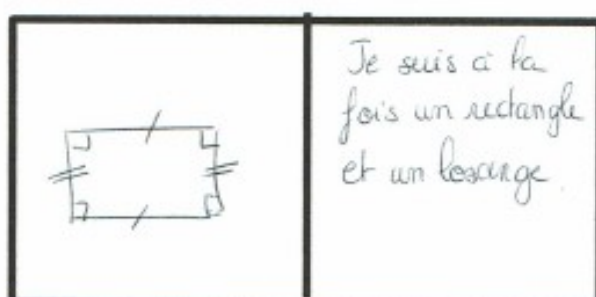 Je suis à la
fois un rectangle
et un losange.